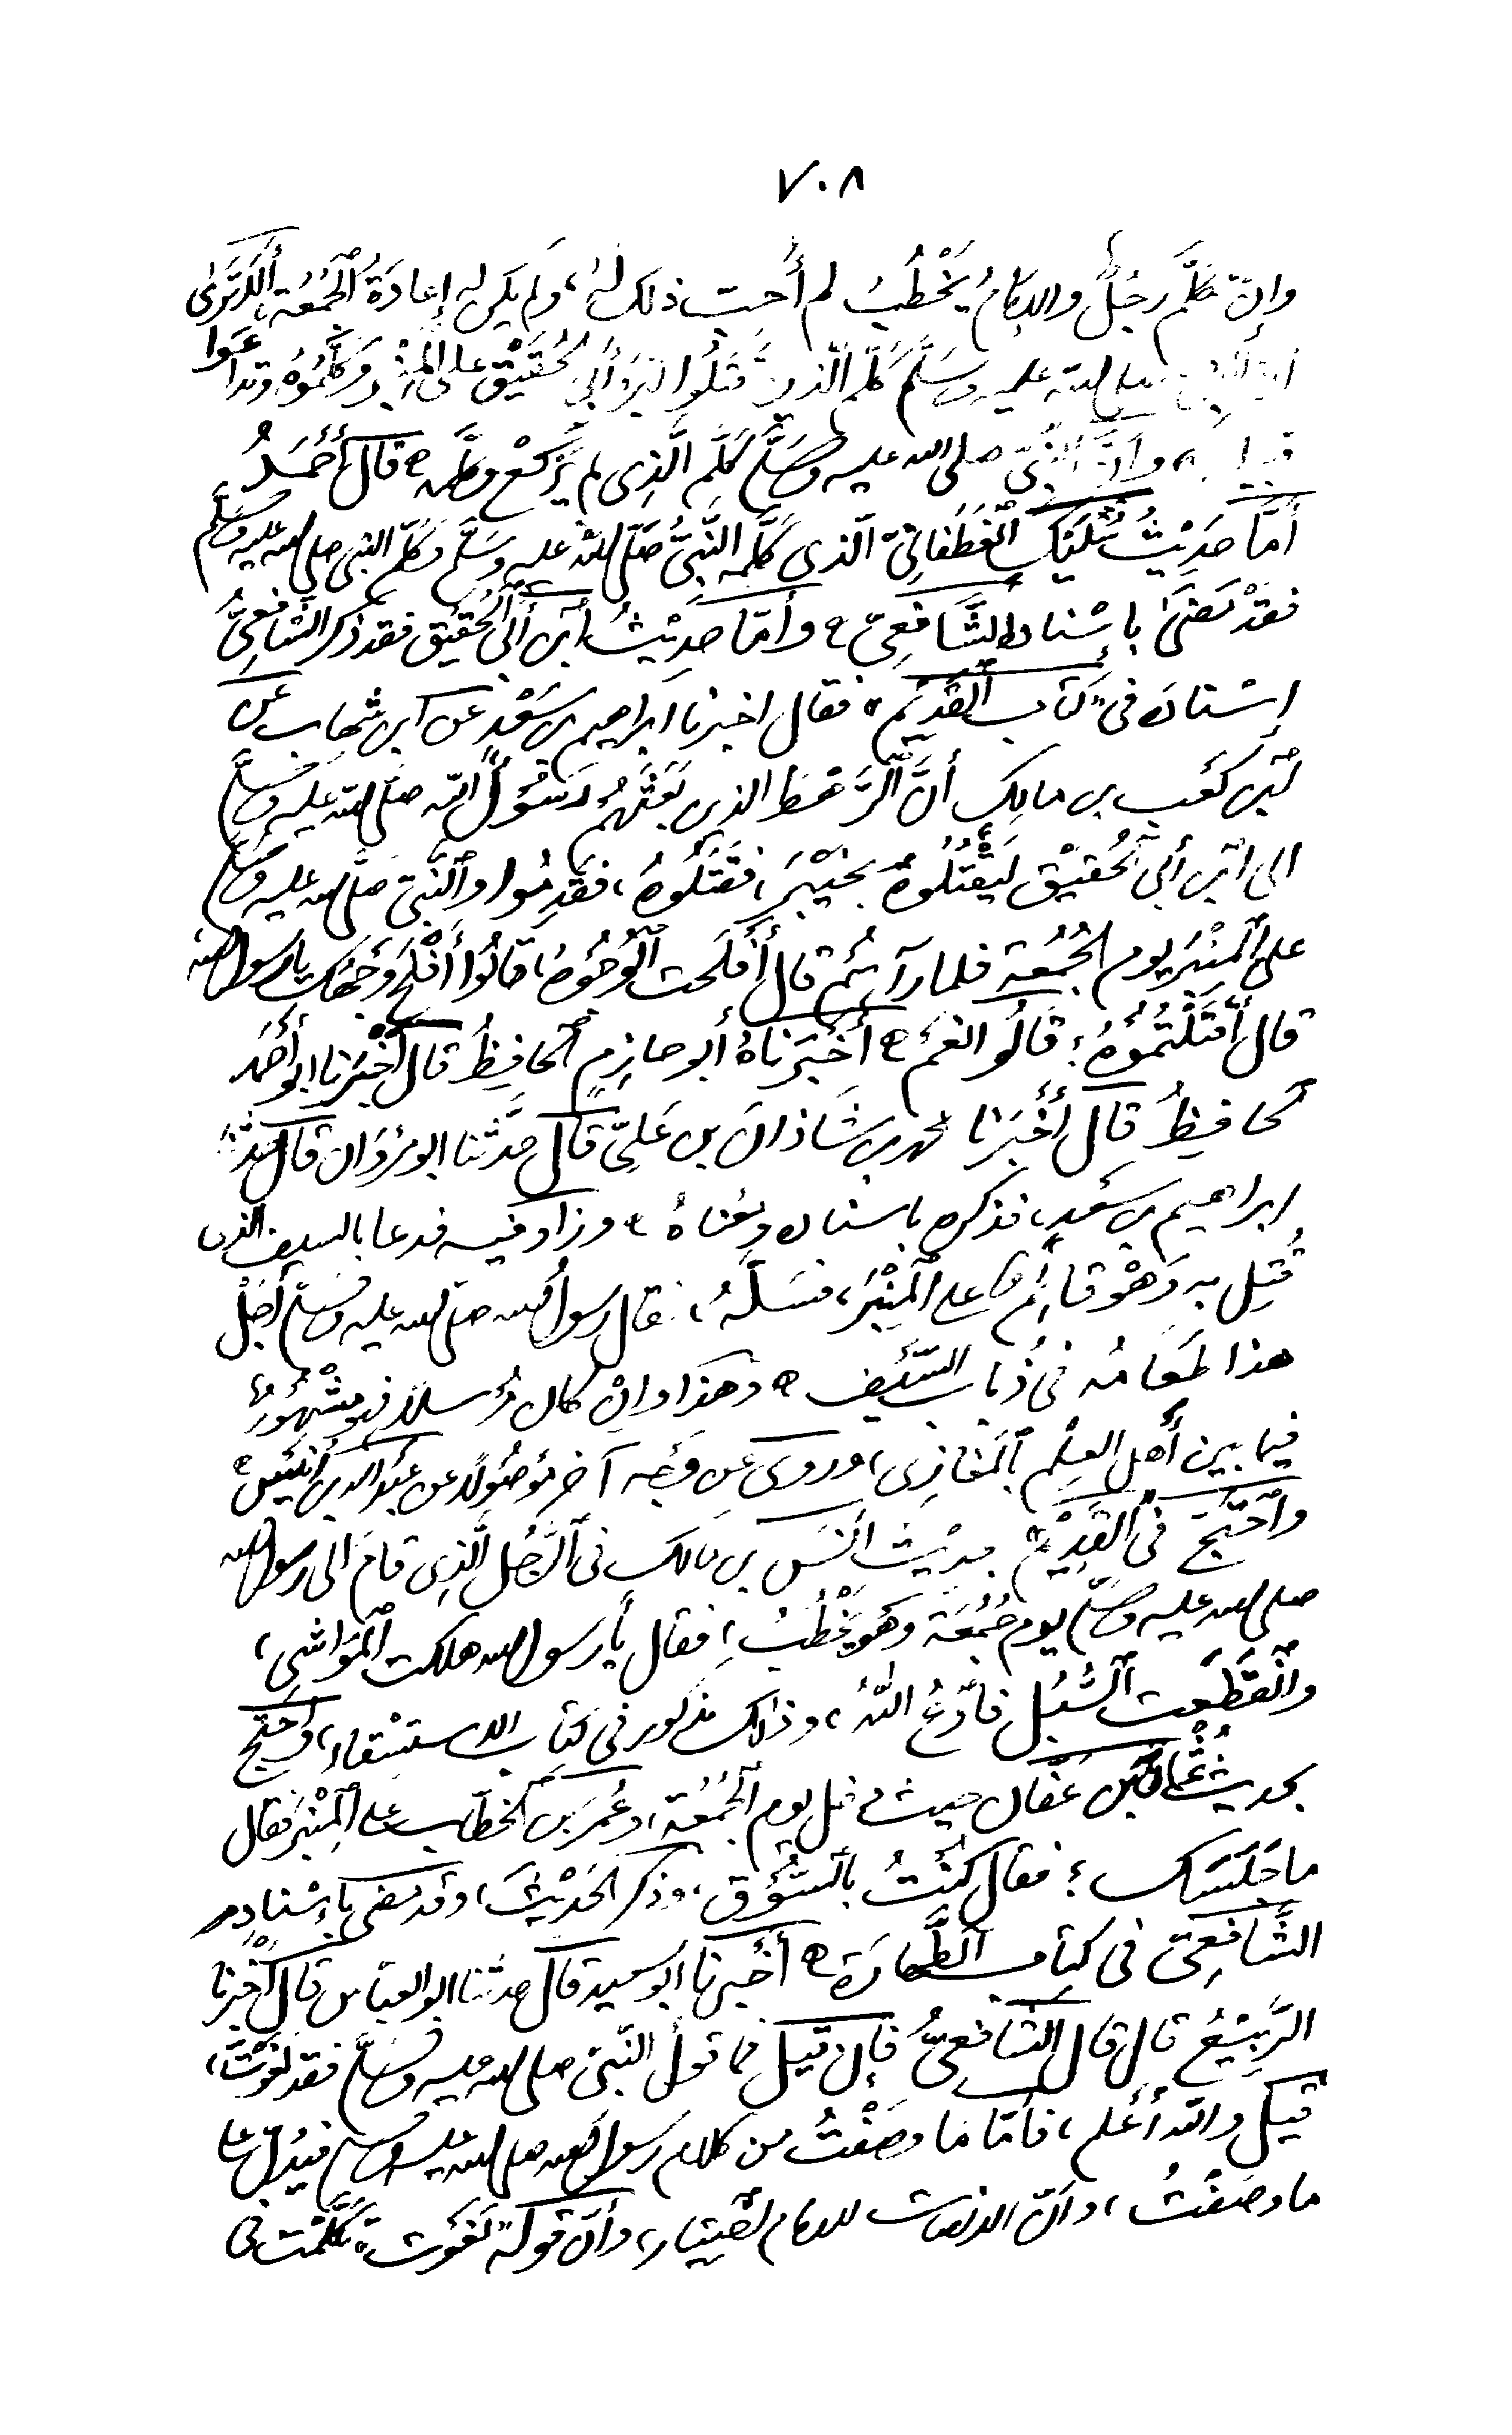 ٧٠٨
وإن كلم رجل والإمام يخطب لم أحب ذلك له، ولم يكن له إعادة الجمعة، ألا ترى
النبي صلى الله عليه وسلم كلم الذين قتلوا ابن أبي الحقيق على المنبر وكلموه وتداعوا
وأن النبي صلى الله عليه وسلم كلم الذي لم يركع وكلمه قال أحمد
أما حديث سليك الغطفاني الذي كلمه النبي صلى الله عليه وسلم وكلم النبي صلى الله عليه وسلم
فقد مضى بإسناد الشافعي وأما حديث ابن أبي الحقيق فقد ذكر الشافعي
إسناده في "كتاب القديم" فقال اخبرنا ابراهيم بن سعد عن ابن شهاب عن
ابن كعب بن مالك أن الرهط الذين بعثهم رسول الله صلى الله عليه وسلم
الى ابن أبي الحقيق ليقتلوه بخيبر، فقتلوه، فقدموا والنبي صلى الله عليه وسلم
على المنبر يوم الجمعة فلما رآهم قال أفلحت الوجوه، قالوا أفلح وجهك يا رسول الله
قال أقتلتموه؟ قالوا نعم أخبرناه أبو حازم الحافظ قال أخبرنا ابو أحمد
الحافظ قال أخبرنا محمد بن شاذان بن علي قال حدثنا ابو مروان قال حدثنا
ابراهيم بن سعد، فذكره باسناده ومعناه وزاد فيه فدعا بالسيف الذي
قتل به وهو قائم على المنبر، فسله، فقال رسول الله صلى الله عليه وسلم أجل
هذا طعامه في ذباب السيف وهذا وإن كان مرسلا فهو مشهور
فيما بين أهل العلم بالمغازي، وروى عن وجه آخر موصولا عن عبد الله بن أنيس
واحتج في القديم بحديث أنس بن مالك في الرجل الذي قام الى رسول الله
صلى الله عليه وسلم يوم جمعة وهو يخطب، فقال يا رسول الله هلكت المواشي،
وانقطعت السبل فادع الله، وذلك مذكور في كتاب الاستسقاء، واحتج
بحديث عثمان بن عفان حيث دخل يوم الجمعة، وعمر بن الخطاب على المنبر فقال
ما حبسك؟ فقال كنت بالسوق، وذكر الحديث، وقد مضى بإسناده
الشافعي في كتاب الطهارة أخبرنا ابو سعيد قال حدثنا ابو العباس قال أخبرنا
الربيع قال قال الشافعي فإن قيل فما قول النبي صلى الله عليه وسلم فقد لغوت،
قيل والله أعلم، فأما ما وصفت من كلام رسول الله صلى الله عليه وسلم فيدل على
ما وصفت، وأن الإنصات للامام اختيار، وأن قوله "لغوت" تكلمت في